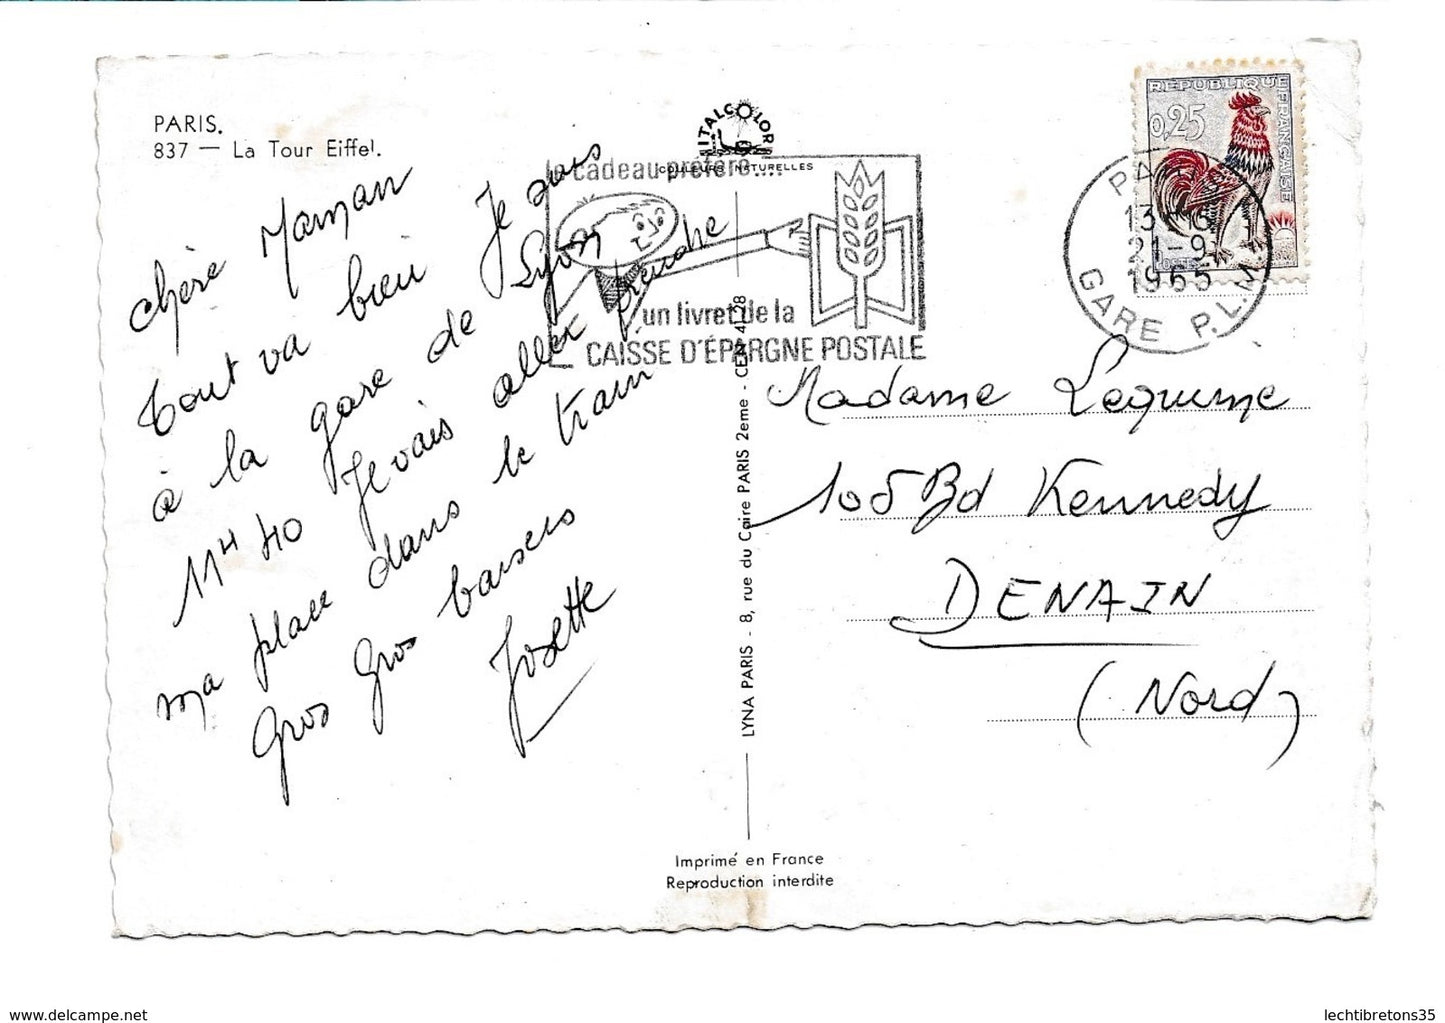 PARIS.
837 — La Tour Eiffel.
ITALCOLOR
COULEURS NATURELLES
le cadeau préféré....
un livret de la
CAISSE D'ÉPARGNE POSTALE
REPUBLIQUE FRANÇAISE
0,25
PARIS
13-
21-9
1965
GARE P.L.M.
chère Maman
Tout va bien Je suis
à la gare de Lyon
11H 40 Je vais aller prendre
ma place dans le train
Gros Gros baisers
Josette
LYNA PARIS - 8, rue du Caire PARIS 2eme - CEN 41-28
Madame Lequime
105 Bd Kennedy
DENAIN
(Nord)
Imprimé en France
Reproduction interdite
delcampe.net
lechtibretons35